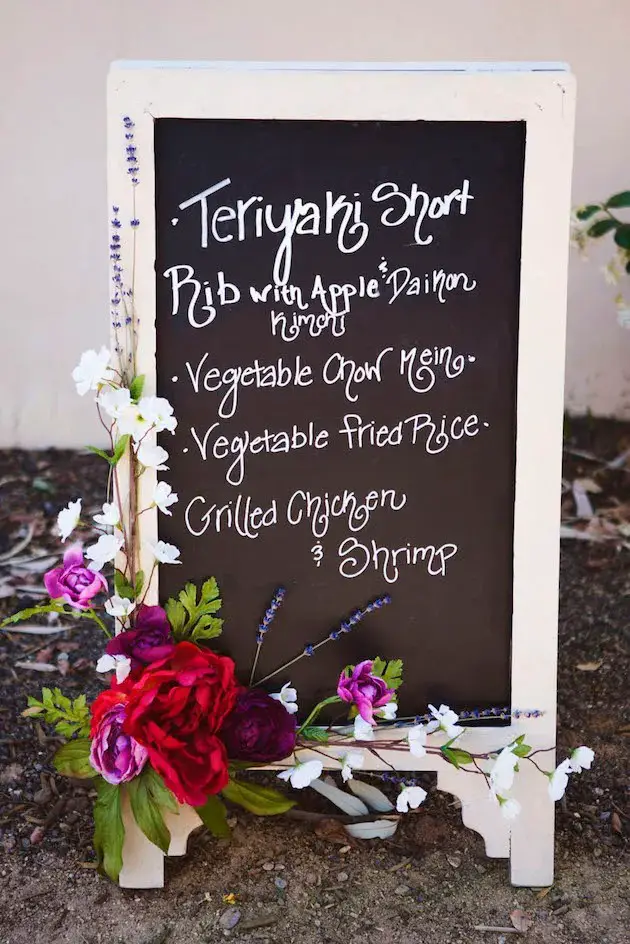 · Teriyaki Short
Rib with Apple & Daikon
Kimchi
· Vegetable Chow Mein ·
· Vegetable Fried Rice ·
Grilled Chicken
& Shrimp